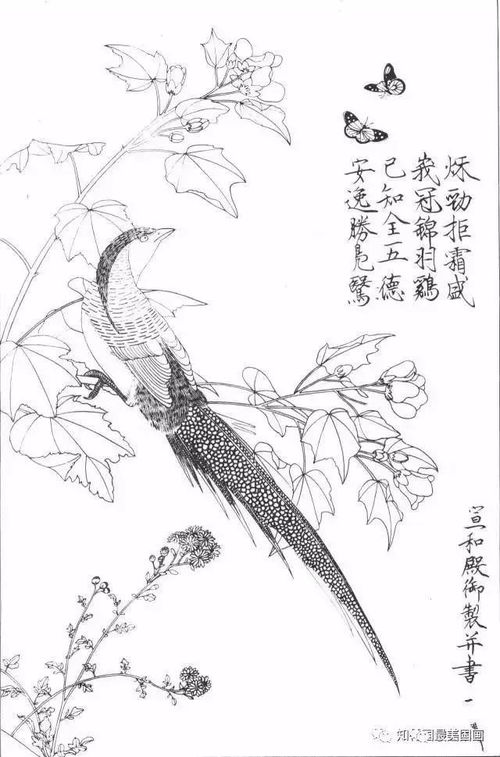 秋勁拒霜盛
峩冠錦羽鷄
已知全五德
安逸勝鳧鷖
宣和殿御製并書
一
最美国画